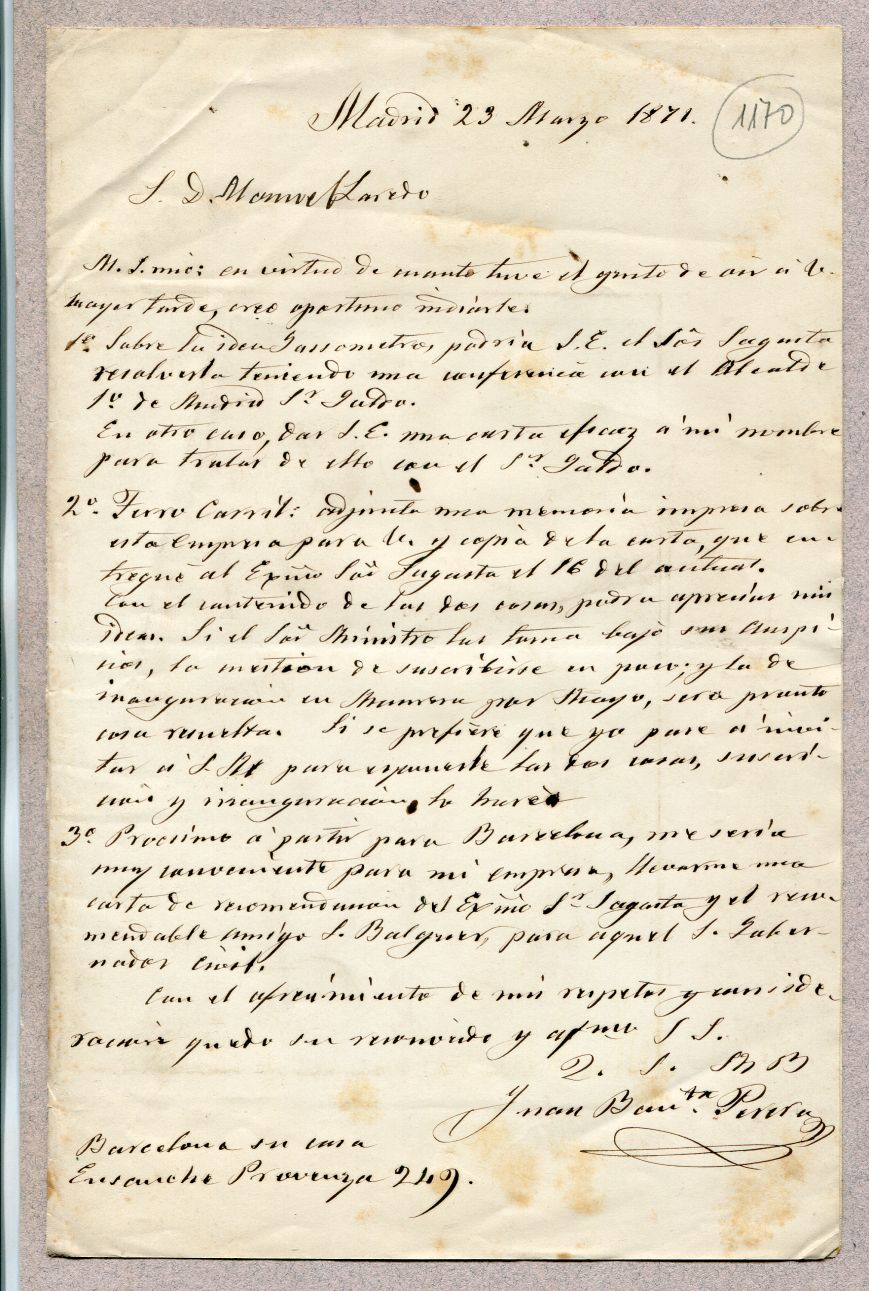 Madrid 23 Marzo 1871.
1170
S. D. Manuel Laredo
M. S. mio: en virtud de cuanto tuve el gusto de oir á V.
ayer tarde, creo oportuno indicarle.
1º. Sobre la idea Gassometros, podria S. E. el Sõr Sagasta
resolverla teniendo una conferencia con el Alcalde
1º de Madrid Sr. Galdo.
En otro caso, dar S. E. una carta eficaz á mi nombre
para tratar de ello con el Sr. Galdo.
2º. Ferro Carril: adjunta una memoria impresa sobre
esta empresa para V. y copia de la carta, que en-
tregué al Exmo Sõr Sagasta el 16 del actual.
Con el contenido de las dos cosas, podra apreciar mis
ideas. Si el Sõr Ministro las toma bajo sus auspi-
cios, la cuestion de suscribirse en poco; y la de
inauguracion en Manresa por Mayo, sera pronto
cosa resuelta. Si se prefiere que yo pase á invi-
tar á S. M. para esponerle las dos cosas, suscri-
cion y inauguracion, lo haré
3º. Procsimo á partir para Barcelona, me seria
muy conveniente para mi empresa, llevarme una
carta de recomendacion del Exmo Sr. Sagasta y el reco-
mendable amigo S. Balaguer, para aquel S. Gober-
nador Civil.
Con el ofrecimiento de mis respetos y conside-
racion quedo su reconocido y afmo S S.
Q. S. M B
Juan Bauta. Perera
Barcelona su casa
Ensanche Provenza 249.